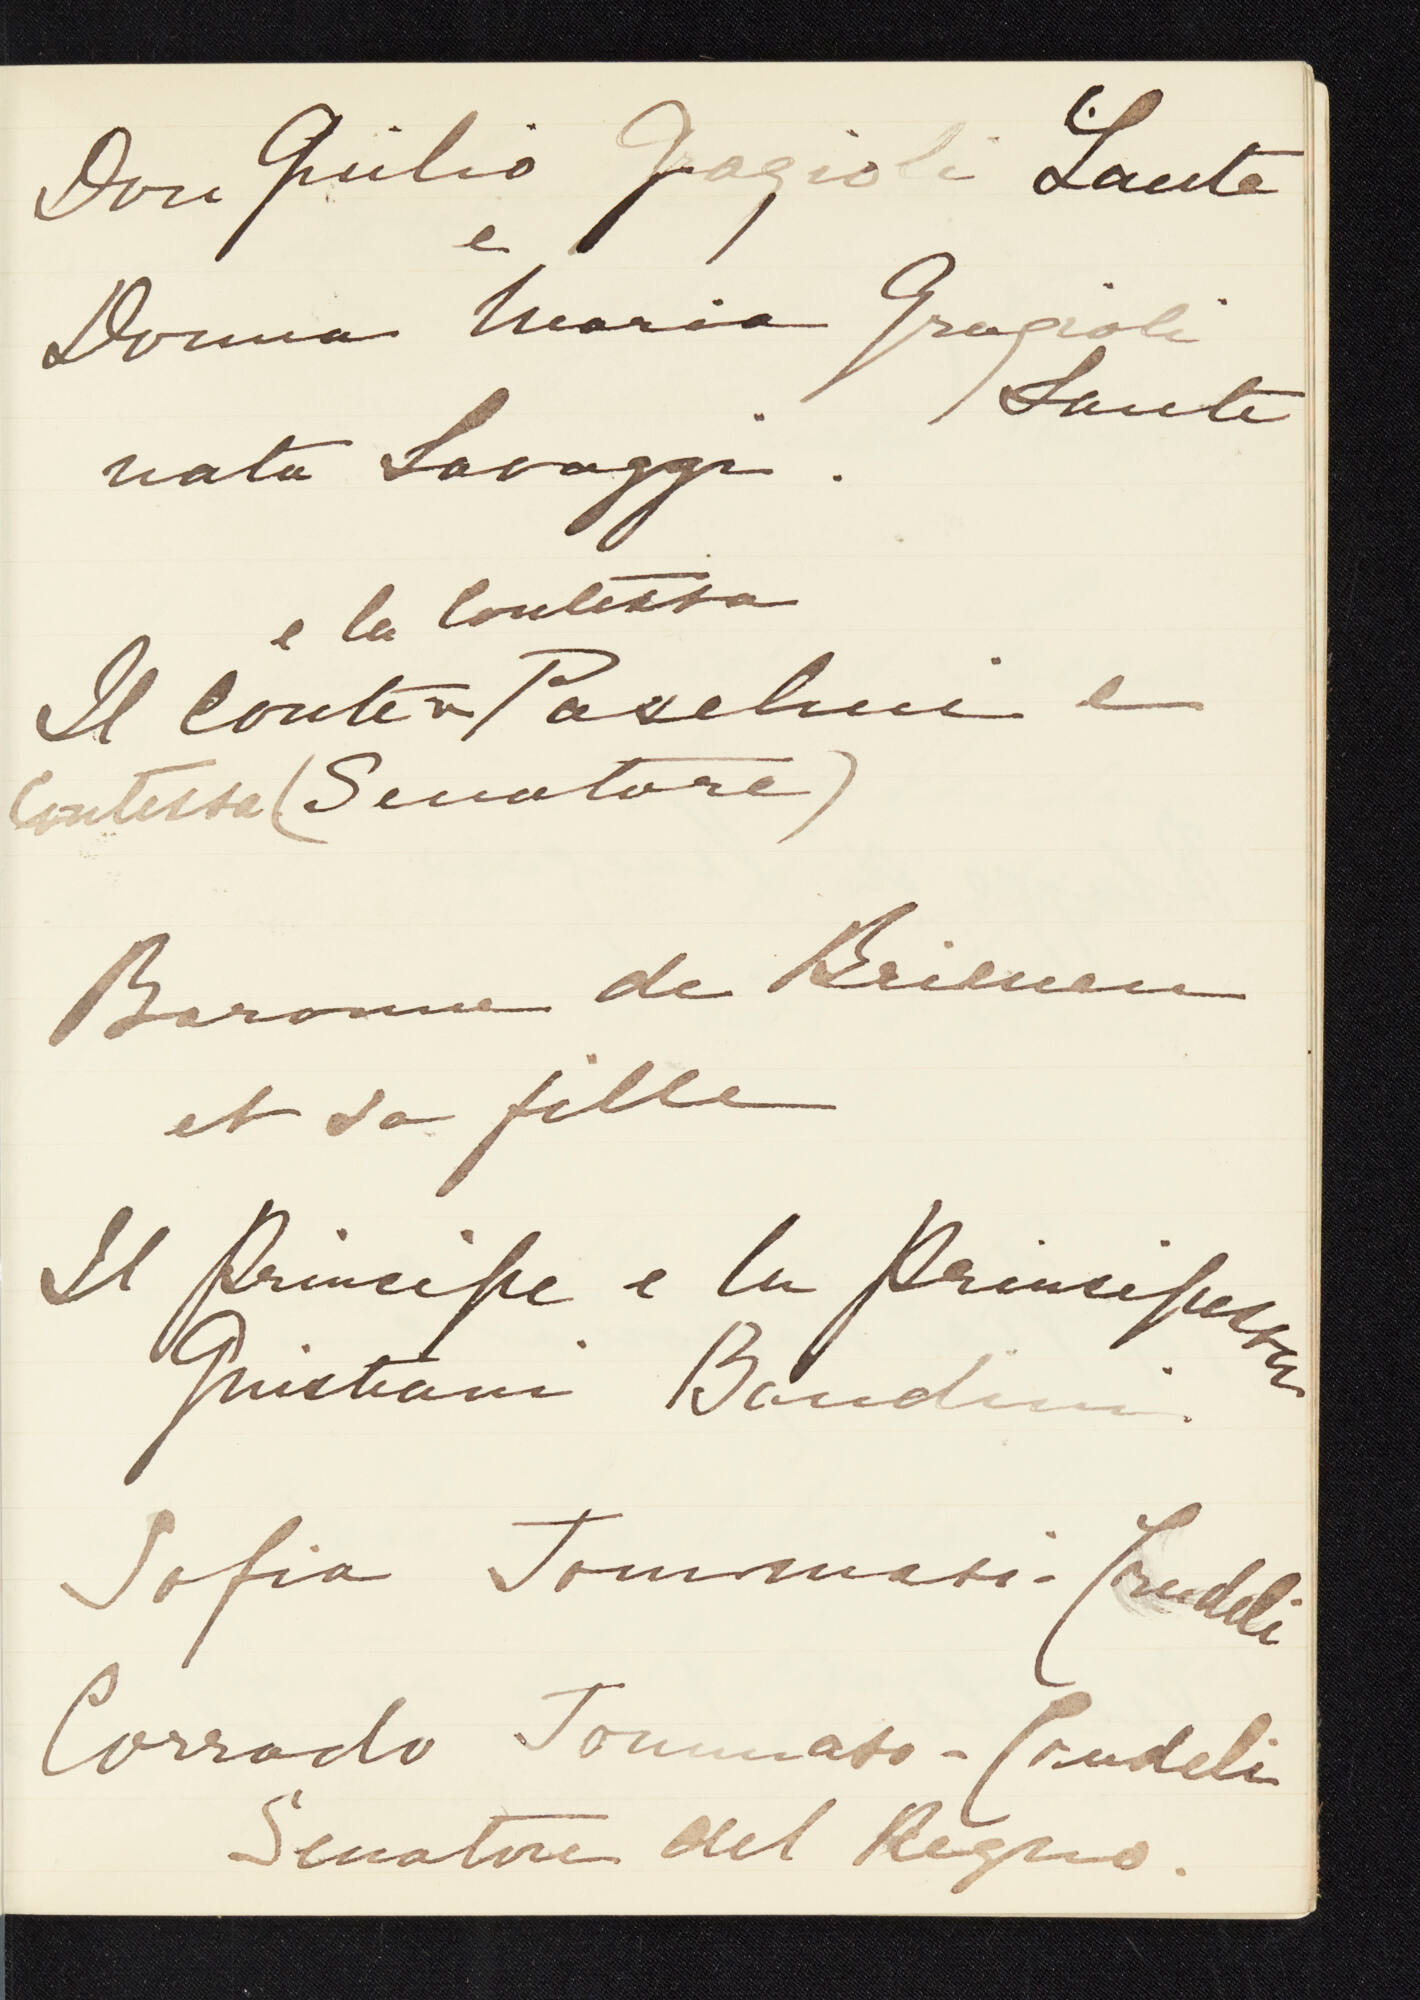 Don Giulio Gragioli Lante
e
Donna Maria Gragioli
Lante
nata Lavaggi.
e la Contessa
Il Conte Paselmi e
Contessa (Senatore)
Baronne de Brienen
et sa fille
Il Principe e la Principessa
Giustiani Bandini.
Sofia Tommasi-Crudeli
Corrado Tommaso-Crudeli
Senatore del Regno.